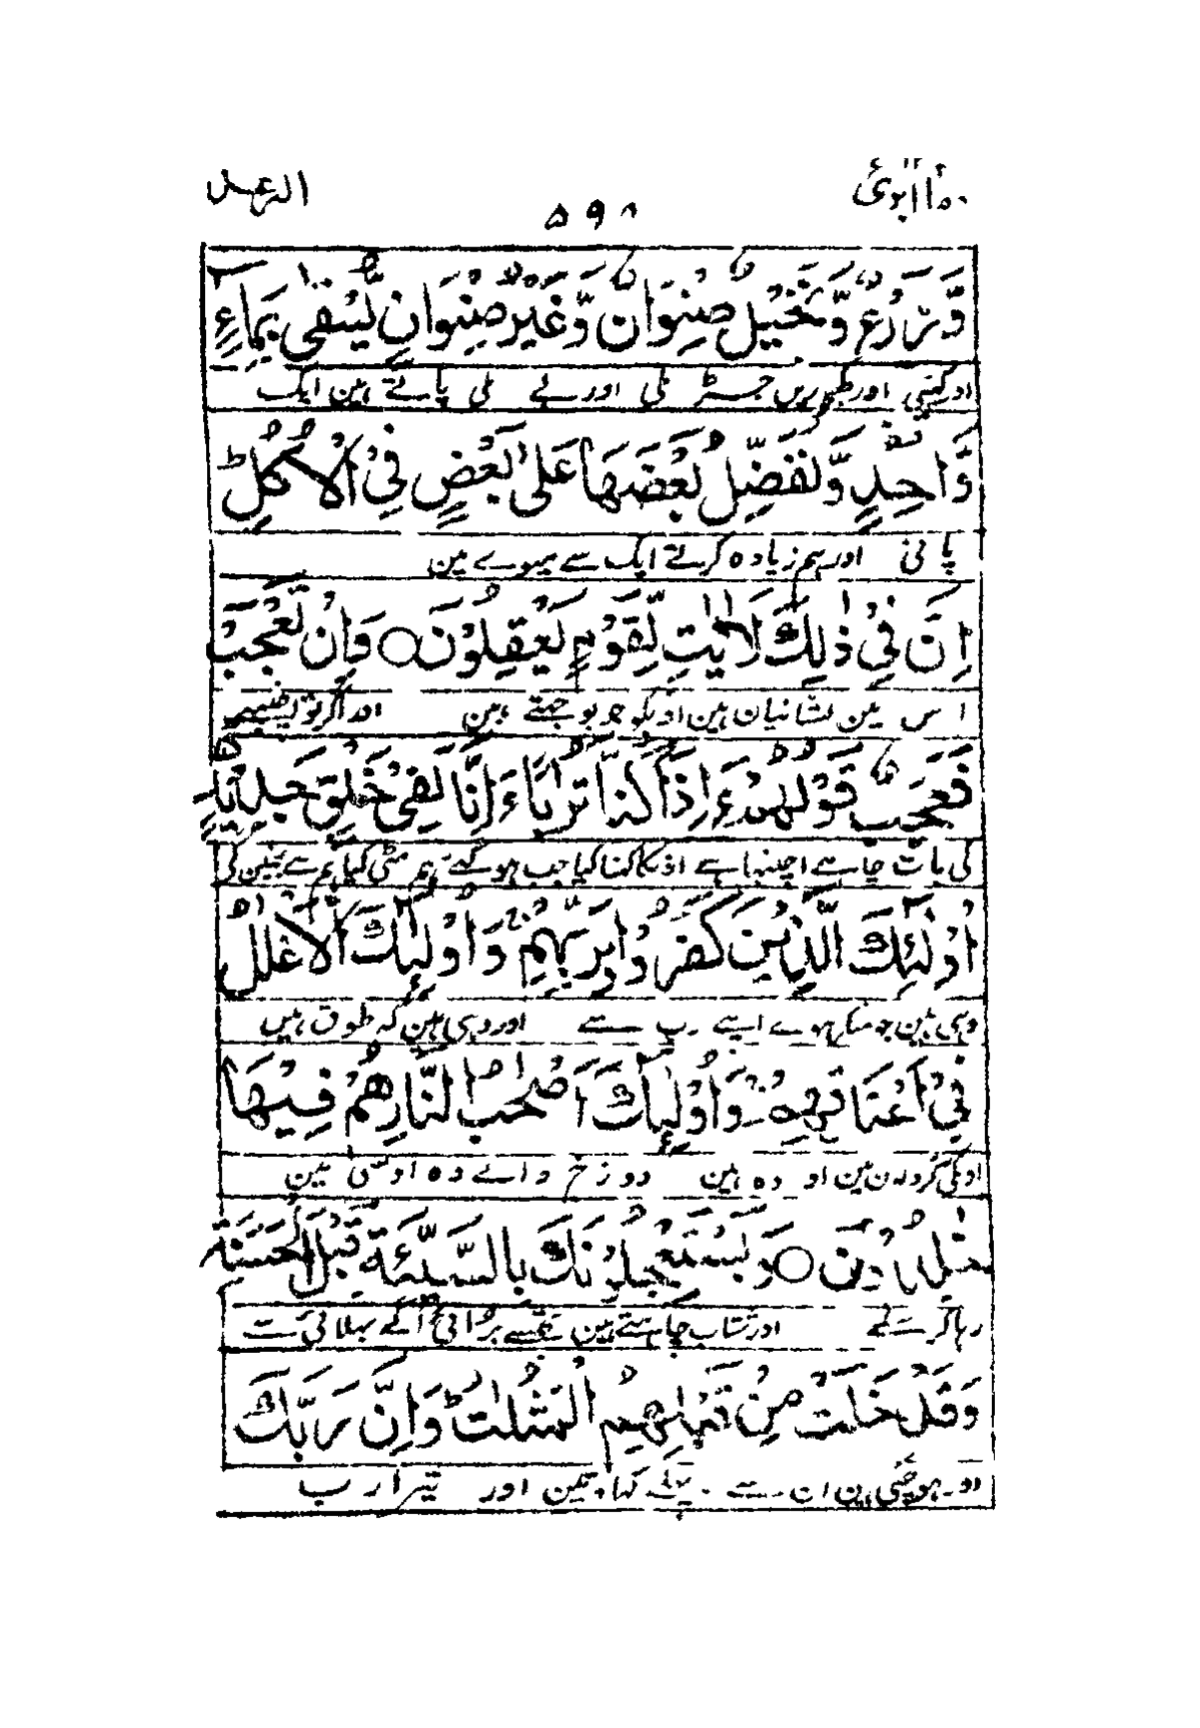 وما ابرئ
الرعد
۵۹۸
وَّزَرْعٌ وَّنَخِيْلٌ صِنْوَانٌ وَّغَيْرُ صِنْوَانٍ يُّسْقٰى بِمَآءٍ
اور کھیتی اور کھجوریں جڑ ملی اور بے ملی پاتے ہین ایک
وَّاحِدٍ وَّنُفَضِّلُ بَعْضَهَا عَلٰى بَعْضٍ فِى الْاُكُلِ ؕ
پانی اور ہم زیادہ کرتے ایک سے میوے مین
اِنَّ فِىْ ذٰلِكَ لَاٰيٰتٍ لِّقَوْمٍ يَّعْقِلُوْنَ ○ وَاِنْ تَعْجَبْ
اس مین نشانیان ہین اونکو جو بوجہتے ہین اور اگر تو
فَعَجَبٌ قَوْلُهُمْ ءَاِذَا كُنَّا تُرٰبًا ءَاِنَّا لَفِىْ خَلْقٍ جَدِيْدٍ
کی بات چاہے اچنبہا ہے اونکا کہنا کیا جب ہو گئے ہم مٹی کیا ہم نئے بنین گے
اُولٰٓئِكَ الَّذِيْنَ كَفَرُوْا بِرَبِّهِمْ وَاُولٰٓئِكَ الْاَغْلٰلُ
وہی ہین جو منکر ہوے اپنے رب سے اور وہی ہین کہ طوق ہین
فِىْٓ اَعْنَاقِهِمْ وَاُولٰٓئِكَ اَصْحٰبُ النَّارِ هُمْ فِيْهَا
اونکی گردنون مین اور وہ ہین دوزخ والے وہ اوسی مین
خٰلِدُوْنَ ○ وَيَسْتَعْجِلُوْنَكَ بِالسَّيِّئَةِ قَبْلَ الْحَسَنَةِ
رہا کرینگے اور شتاب چاہتے ہین تجھسے برائی آگے بہلائی سے
وَقَدْ خَلَتْ مِنْ قَبْلِهِمُ الْمَثُلٰتُ ؕ وَاِنَّ رَبَّكَ
اور ہو چکی ہین ان سے پہلے کہاوتین اور تیرا رب